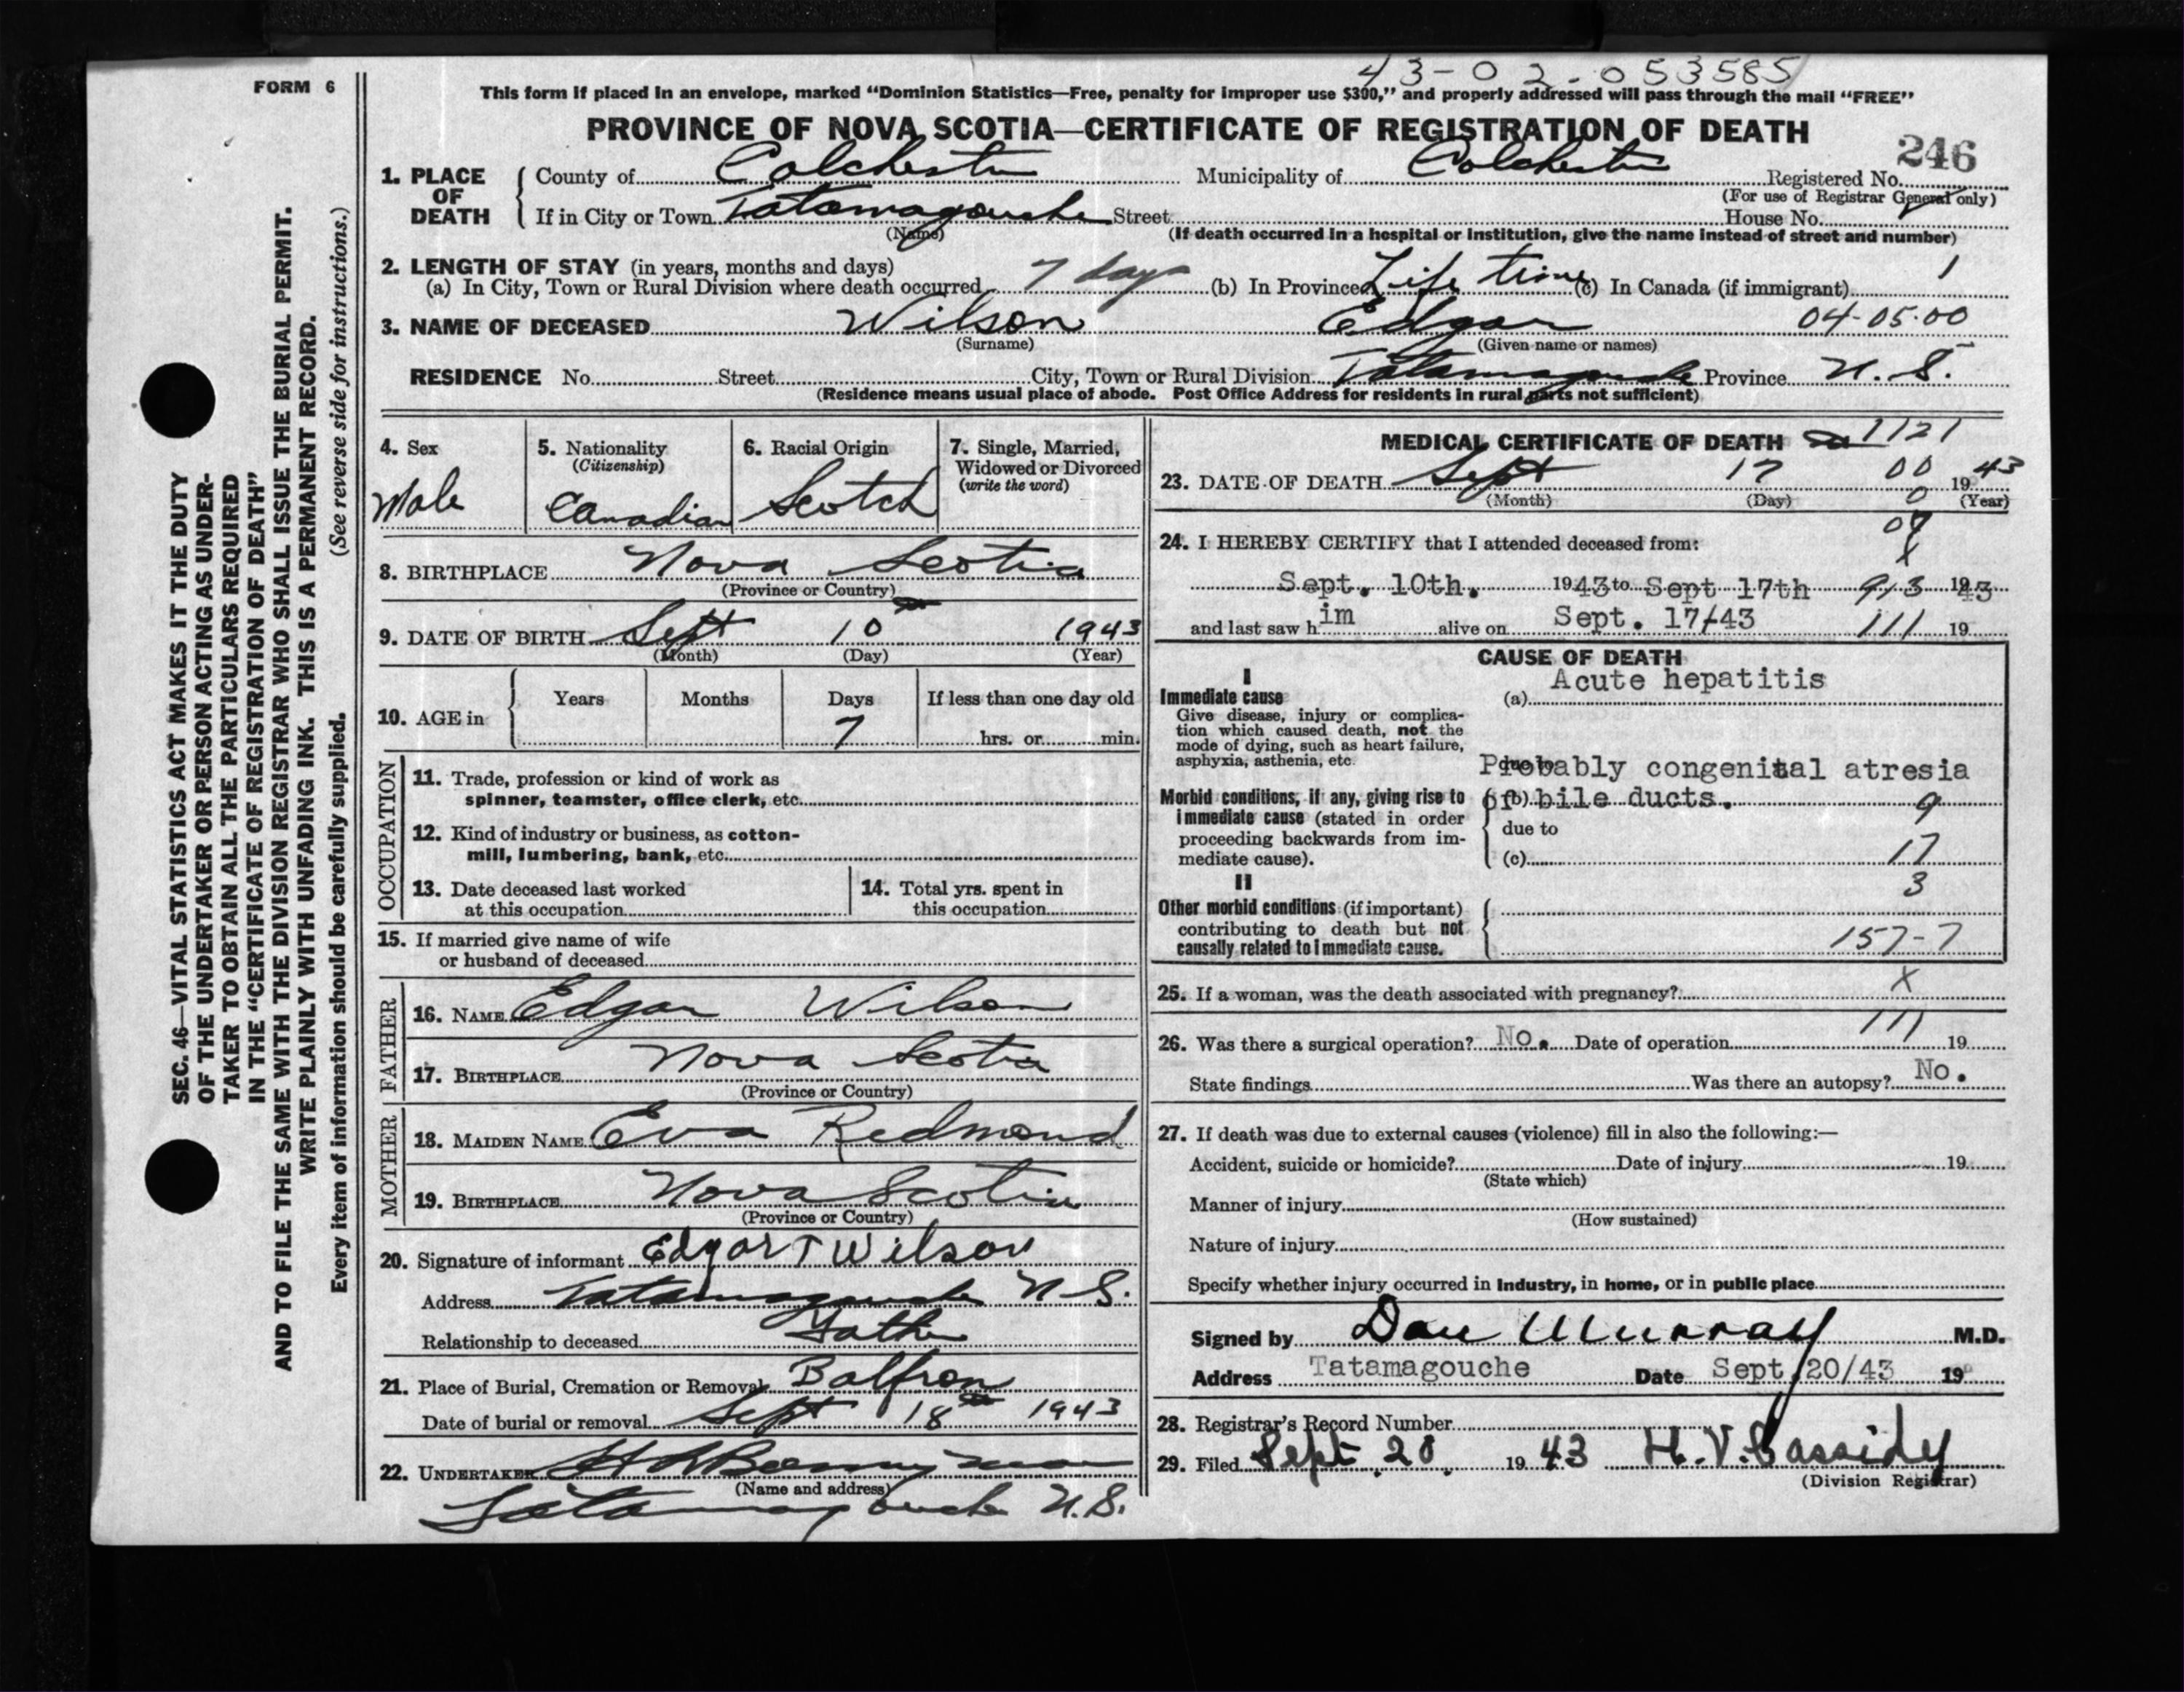 FORM 6
43-02-053585
This form if placed in an envelope, marked “Dominion Statistics—Free, penalty for improper use $300,” and properly addressed will pass through the mail “FREE”
PROVINCE OF NOVA SCOTIA—CERTIFICATE OF REGISTRATION OF DEATH
246
1. PLACE OF DEATH
County of Colchester Municipality of Colchester Registered No.
(For use of Registrar General only)
If in City or Town Tatamagouche Street House No.
(Name) (If death occurred in a hospital or institution, give the name instead of street and number)
2. LENGTH OF STAY (in years, months and days)
(a) In City, Town or Rural Division where death occurred 7 days (b) In Province Life time (c) In Canada (if immigrant) 1
3. NAME OF DECEASED Wilson Edgar 04-05-00
(Surname) (Given name or names)
RESIDENCE No. Street City, Town or Rural Division Tatamagouche Province N. S.
(Residence means usual place of abode. Post Office Address for residents in rural parts not sufficient)
4. Sex
Male
5. Nationality
(Citizenship)
Canadian
6. Racial Origin
Scotch
7. Single, Married,
Widowed or Divorced
(write the word)
8. BIRTHPLACE Nova Scotia
(Province or Country)
9. DATE OF BIRTH Sept 10 1943
(Month) (Day) (Year)
10. AGE in
Years Months Days If less than one day old
7 hrs. or min.
OCCUPATION
11. Trade, profession or kind of work as
spinner, teamster, office clerk, etc.
12. Kind of industry or business, as cotton-
mill, lumbering, bank, etc.
13. Date deceased last worked
at this occupation
14. Total yrs. spent in
this occupation
15. If married give name of wife
or husband of deceased
FATHER
16. NAME Edgar Wilson
17. BIRTHPLACE Nova Scotia
(Province or Country)
MOTHER
18. MAIDEN NAME Eva Redmond
19. BIRTHPLACE Nova Scotia
(Province or Country)
20. Signature of informant Edgar T Wilson
Address Tatamagouche N S.
Relationship to deceased Father
21. Place of Burial, Cremation or Removal Balfron
Date of burial or removal Sept 18th 1943
22. UNDERTAKER
(Name and address)
Tatamagouche N.S.
MEDICAL CERTIFICATE OF DEATH 1121
23. DATE OF DEATH Sept 17 00 1943
(Month) (Day) 0 (Year)
09
24. I HEREBY CERTIFY that I attended deceased from: X
Sept. 10th. 1943 to Sept 17th 913 1943
and last saw him alive on Sept. 17/43 111 19
CAUSE OF DEATH
I
Immediate cause
Give disease, injury or complica-
tion which caused death, not the
mode of dying, such as heart failure,
asphyxia, asthenia, etc.
(a) Acute hepatitis
due to
Probably congenital atresia
Morbid conditions, if any, giving rise to
immediate cause (stated in order
proceeding backwards from im-
mediate cause).
(b) of bile ducts. 9
due to
(c) 17
3
II
Other morbid conditions (if important)
contributing to death but not
causally related to immediate cause.
157-7
25. If a woman, was the death associated with pregnancy? X
26. Was there a surgical operation? No. Date of operation 111 19
State findings Was there an autopsy? No.
27. If death was due to external causes (violence) fill in also the following:—
Accident, suicide or homicide? Date of injury 19
(State which)
Manner of injury
(How sustained)
Nature of injury
Specify whether injury occurred in industry, in home, or in public place
Signed by Dan Murray M.D.
Address Tatamagouche Date Sept 20/43 19
28. Registrar's Record Number
29. Filed Sept 20, 1943 H. V. Cassidy
(Division Registrar)
SEC. 46—VITAL STATISTICS ACT MAKES IT THE DUTY
OF THE UNDERTAKER OR PERSON ACTING AS UNDER-
TAKER TO OBTAIN ALL THE PARTICULARS REQUIRED
IN THE “CERTIFICATE OF REGISTRATION OF DEATH”
AND TO FILE THE SAME WITH THE DIVISION REGISTRAR WHO SHALL ISSUE THE BURIAL PERMIT.
WRITE PLAINLY WITH UNFADING INK. THIS IS A PERMANENT RECORD.
Every item of information should be carefully supplied. (See reverse side for instructions.)